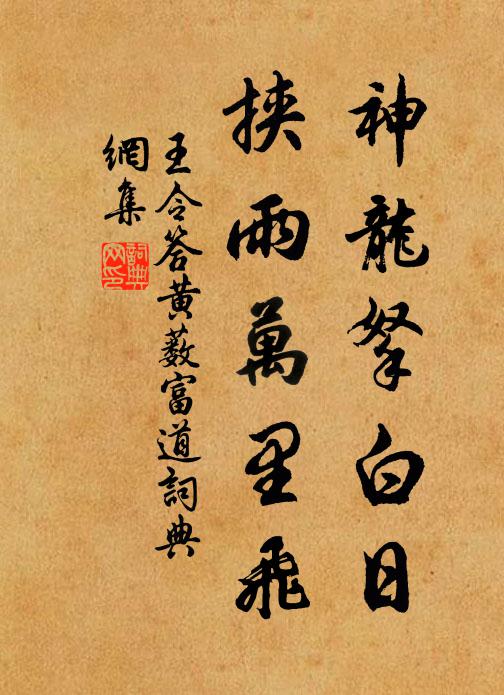 神龍拏白日
挾雨萬里飛
王令答黃藪富道詞典
網集
詞典
网印